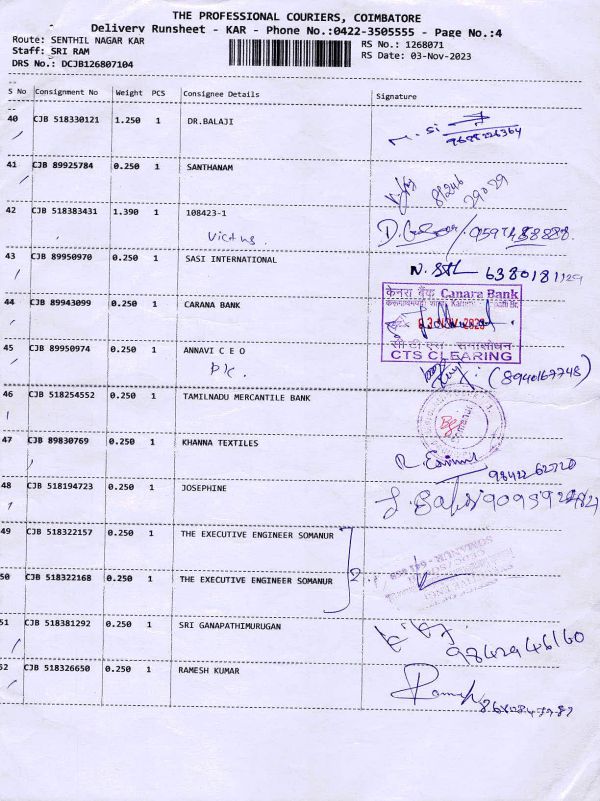 THE PROFESSIONAL COURIERS, COIMBATORE
Delivery Runsheet - KAR - Phone No.:0422-3505555 - Page No.:4
Route: SENTHIL NAGAR KAR
RS No.: 1268071
Staff: SRI RAM
RS Date: 03-Nov-2023
DRS No.: DCJB126807104
S No Consignment No Weight PCS Consignee Details Signature
40 CJB 518330121 1.250 1 DR.BALAJI
41 CJB 89925784 0.250 1 SANTHANAM
81246
29029
42 CJB 518383431 1.390 1 108423-1
Victus.
43 CJB 89950970 0.250 1 SASI INTERNATIONAL
6380181129
44 CJB 89943099 0.250 1 CARANA BANK
केनरा बैंक Canara Bank
CTS CLEARING
45 CJB 89950974 0.250 1 ANNAVI C E O
(8940167748)
46 CJB 518254552 1 TAMILNADU MERCANTILE BANK
47 CJB 89830769 0.250 1 KHANNA TEXTILES
98422 62720
48 CJB 518194723 0.250 1 JOSEPHINE
49 CJB 518322157 0.250 1 THE EXECUTIVE ENGINEER SOMANUR
2
50 CJB 518322168 0.250 1 THE EXECUTIVE ENGINEER SOMANUR
51 CJB 518381292 0.250 1 SRI GANAPATHIMURUGAN
9842946160
52 CJB 518326650 0.250 1 RAMESH KUMAR